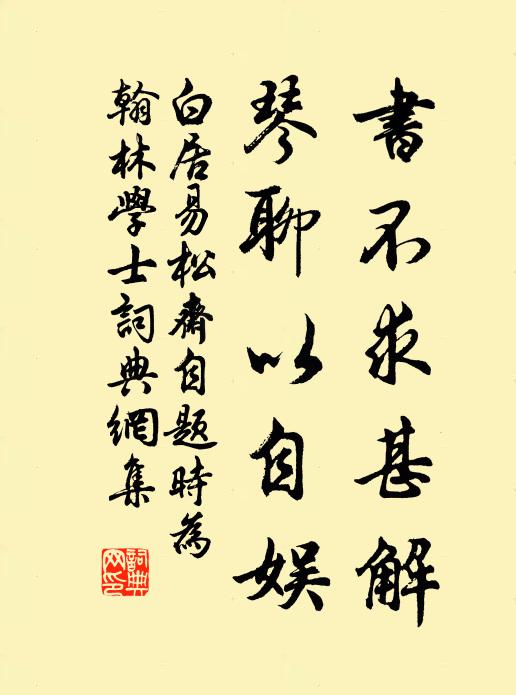 書不求甚解
琴聊以自娱
白居易松齋自題時為
翰林學士詞典網集
詞典
网印